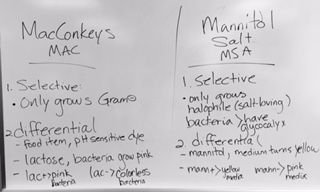 MacConkeys
MAC
1. Selective:
• Only grows Gram ⊖
2. differential
- food item, pH sensitive dye
- lactose, bacteria grow pink
- lac+ > pink bacteria lac- > colorless bacteria
Mannitol
Salt
MSA
1. Selective
• only grows
halophile (salt-loving)
bacteria > have
glycocalyx
2. differential
- mannitol, medium turns yellow
- mann+ > yellow media mann- > pink media